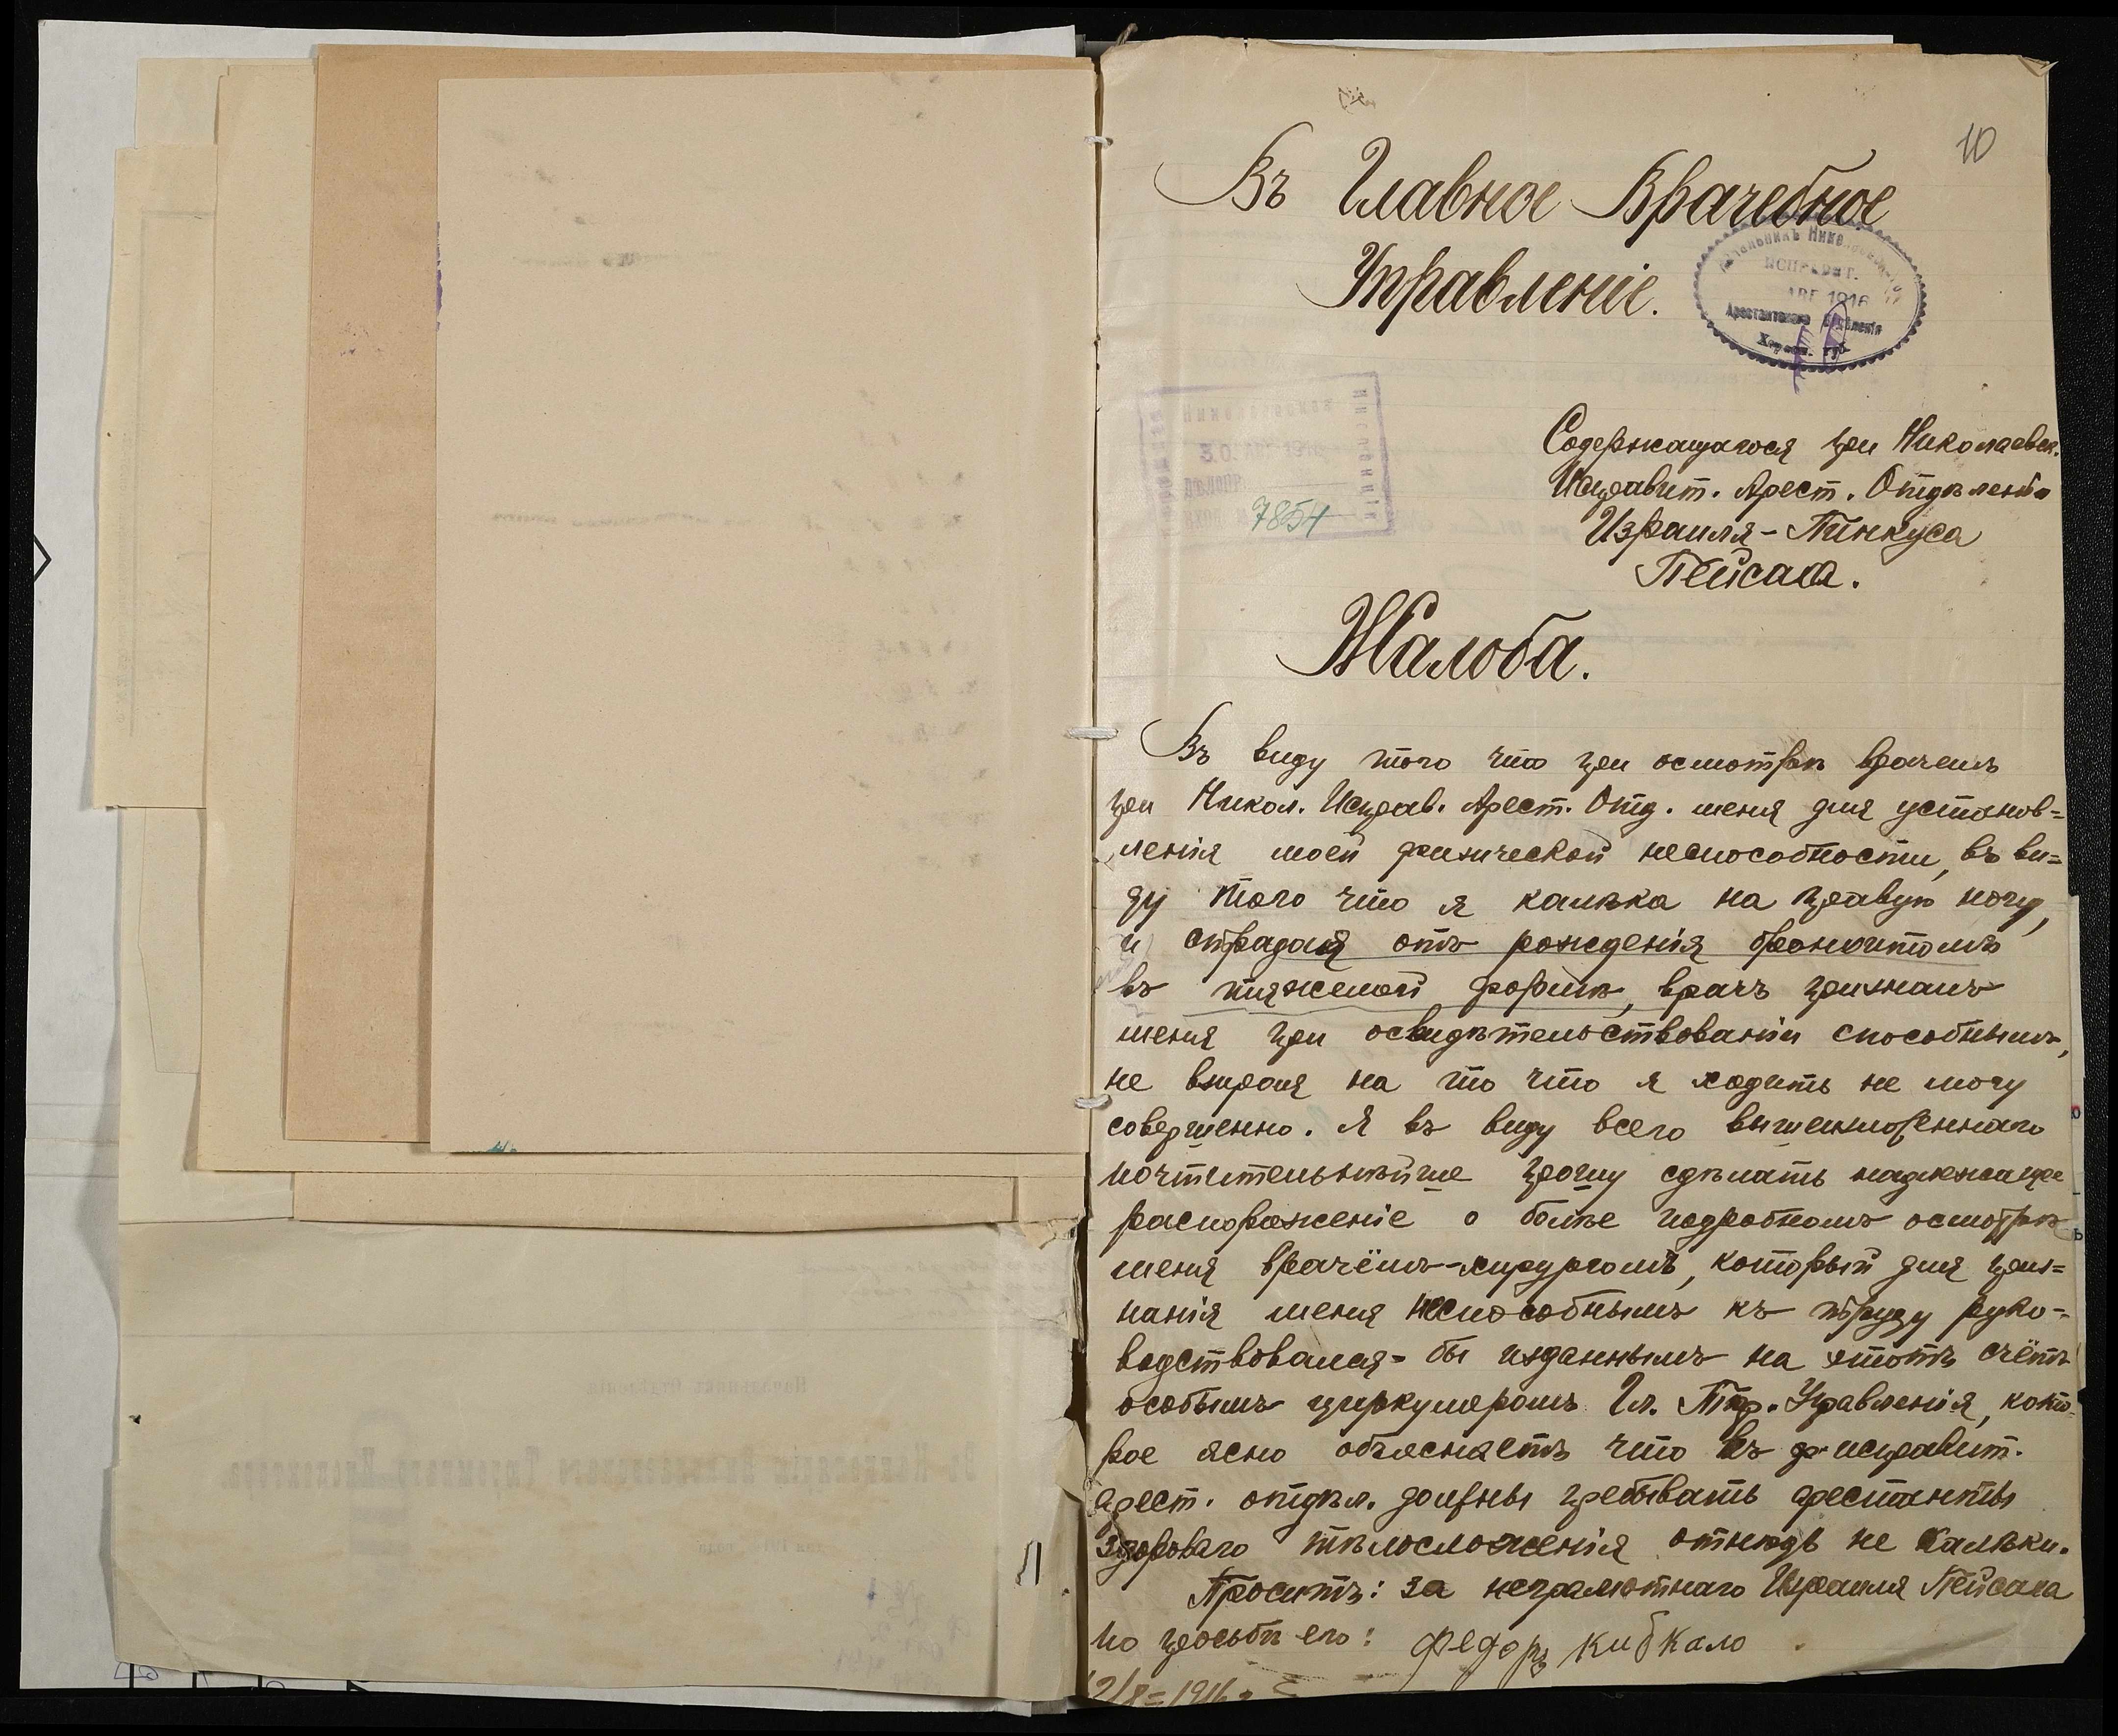 10
Въ Главное Врачебное
Управленіе.
Начальникъ Николаевскаго
ИСПРАВИТ.
АВГ 1916
Арестантскаго Отдѣленія
Херсон. губ.
Николаевское
30 АВГ 1916
7854
Содержащагося при Николаевск.
Исправит. Арест. Отдѣленіи
Израиля-Пинкуса
Пейсаха.
Жалоба.
Въ виду того что при осмотрѣ врачемъ
при Никол. Исправ. Арест. Отд. меня для установ=
ленія моей физической неспособности, въ ви=
ду того что я калѣка на правую ногу,
и страдая отъ рожденія бронхитомъ
въ тяжелой формѣ, врачъ призналъ
меня при освидѣтельствованіи способнымъ,
не взирая на то что я ходить не могу
совершенно. Я въ виду всего вышеизложеннаго
почтительнѣйше прошу сдѣлать надлежаще
распоряженіе о болѣе подробномъ осмотрѣ
меня врачёмъ-хирургомъ, который для приз=
нанія меня неспособнымъ къ труду руко=
водствовался-бы изданнымъ на этотъ счётъ
особымъ циркуляромъ Гл. Тюр. Управленія, кото
рое ясно объясняетъ что въ исправит.
арест. отдѣл. должны пребывать арестанты
здороваго тѣлосложенія отнюдь не калѣки.
Проситъ: за неграмотнаго Израиля Пейсаха
по просьбѣ его: Федоръ Кибкало
2/8=1916